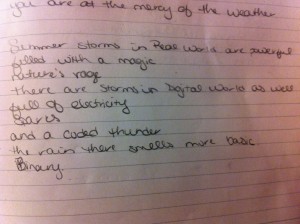 you are at the mercy of the weather
Summer storms in Real World are powerful
filled with a magic
nature's rage
there are storms in Digital World as well
full of electricity
and a coded thunder
the rain there smells more basic
Binary